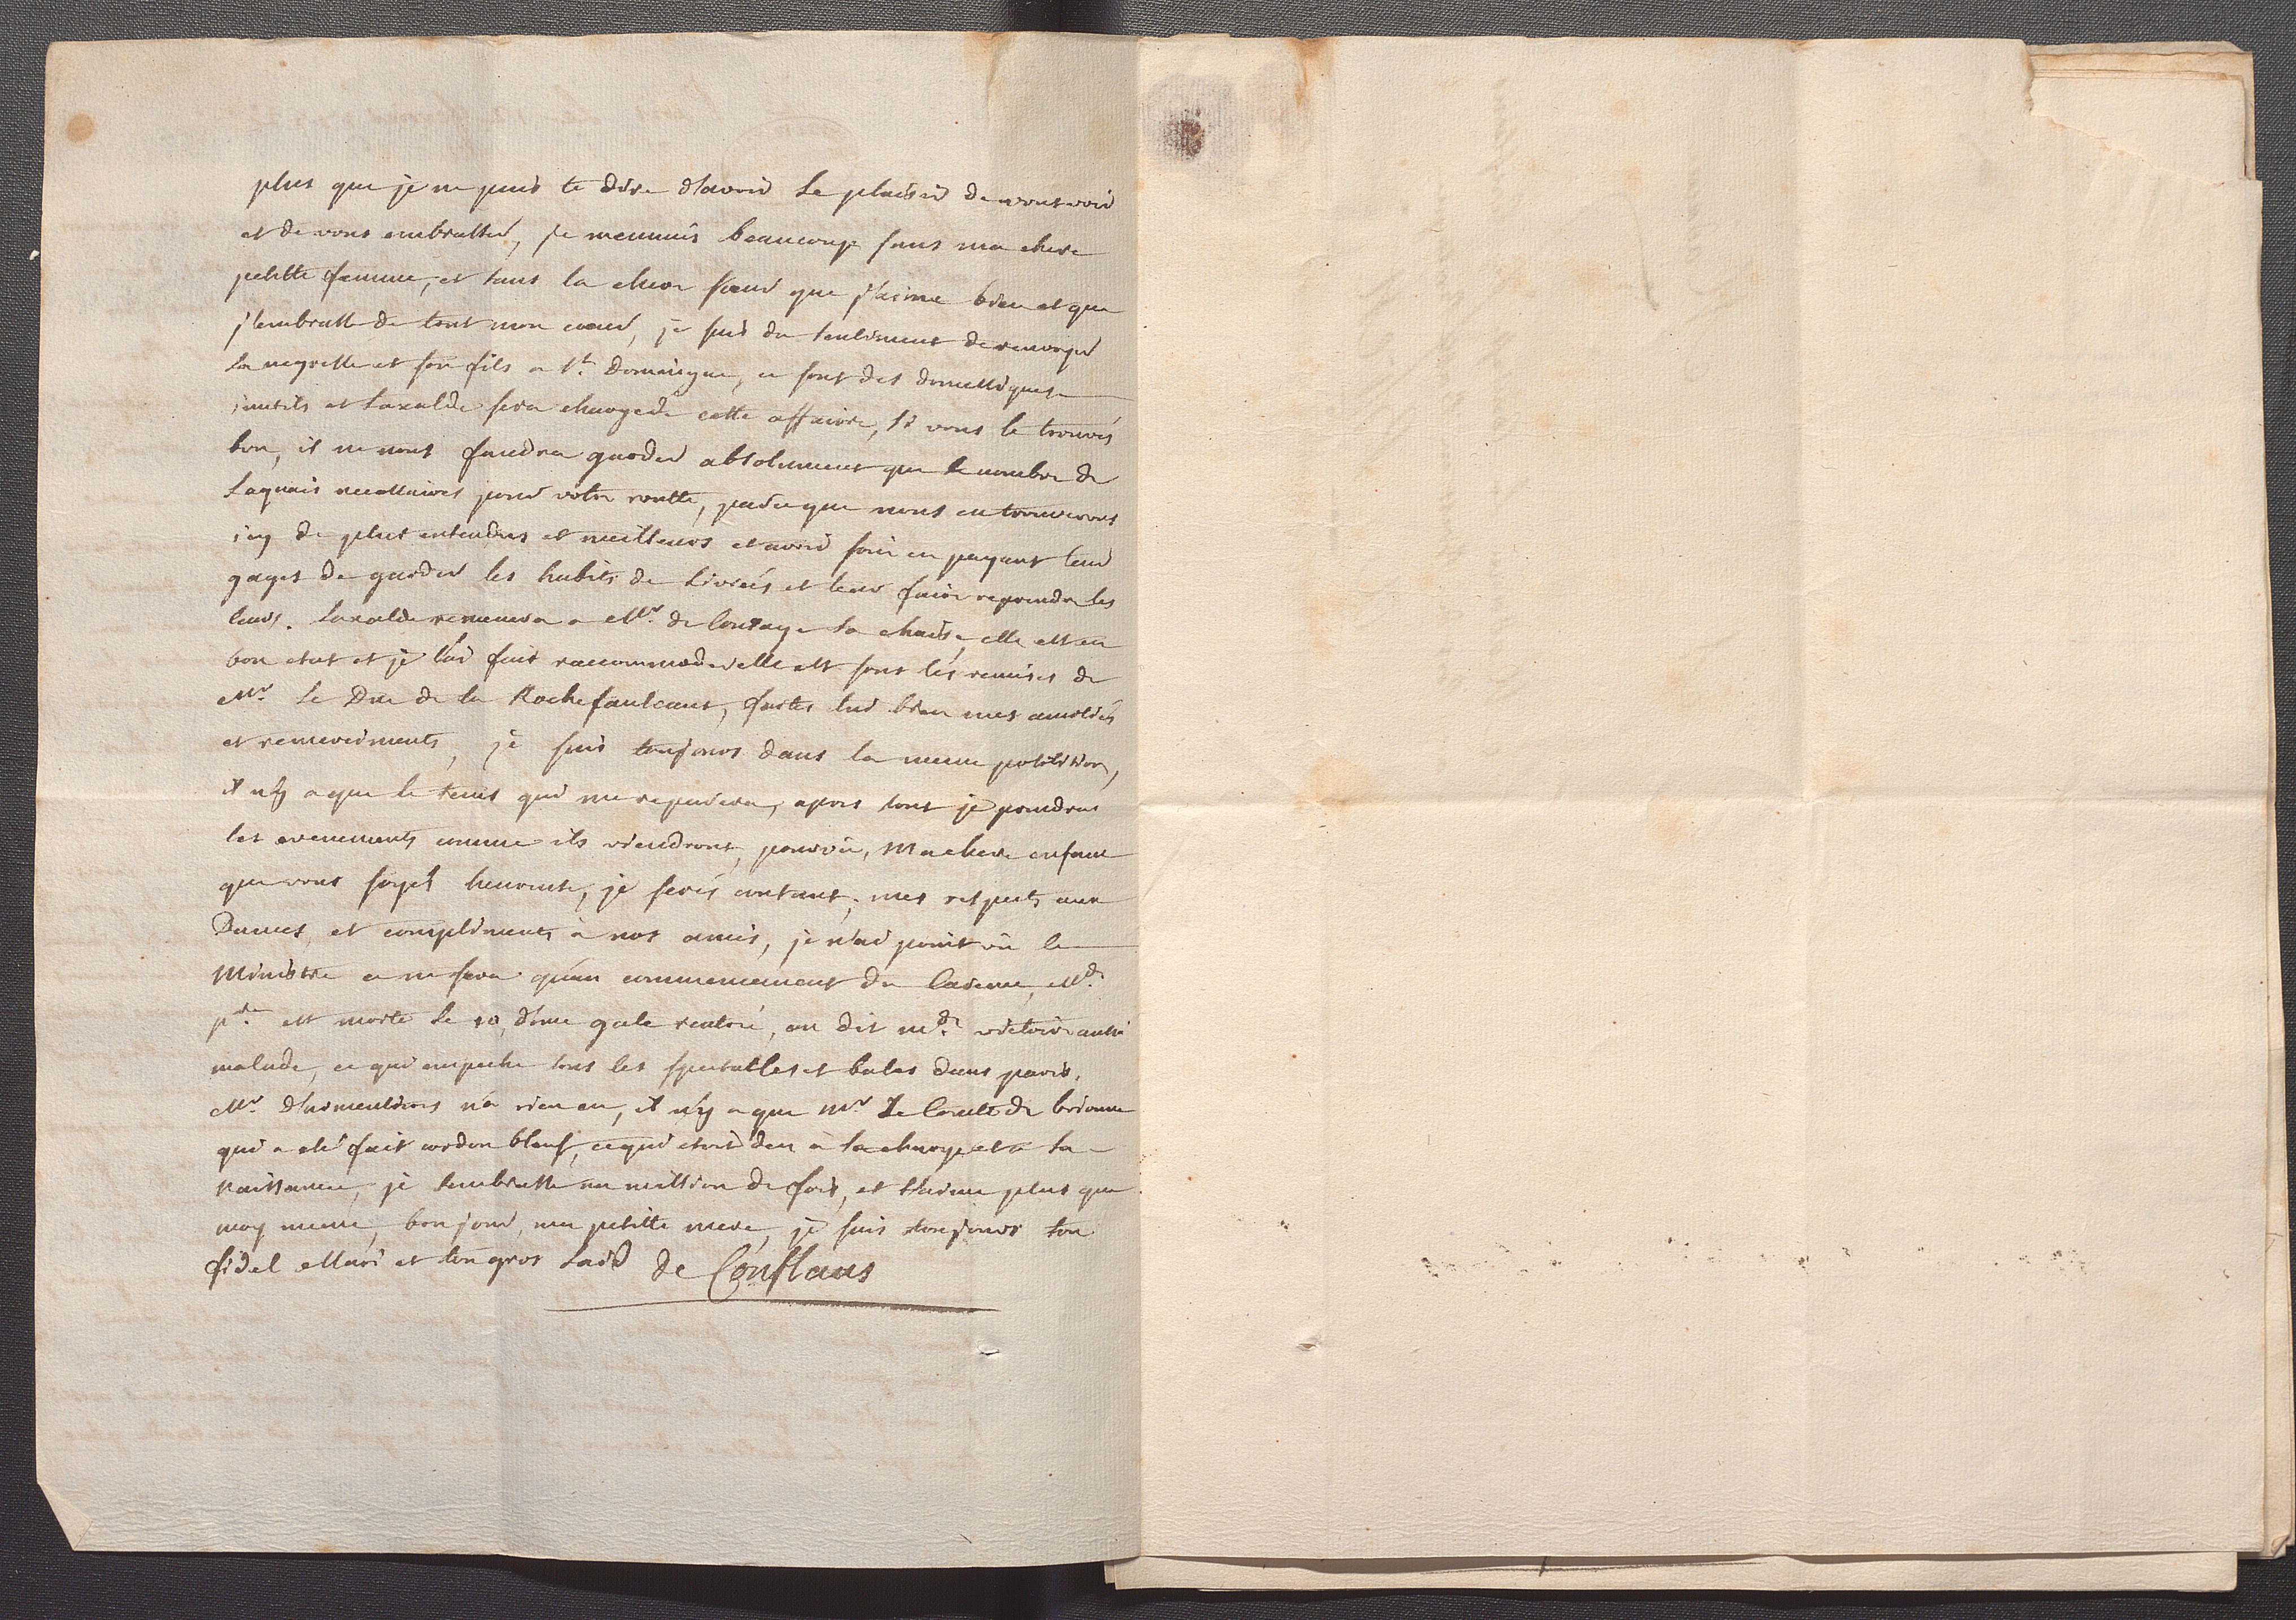 plus que je ne puis te dire d'avoir le plaisir de vous voir
et de vous embrasser, je mennuis beaucoup sans ma chere
petitte femme, et sans la chere soeur que j'aime bien et que
j'embrasse de tout mon coeur, je suis du sentiment de renvoyer
la negresse et son fils a St. Domaigue, ce sont des domestiques
inutils et Laxalde sera chargé de cette affaire, si vous le trouvés
bon, il ne nous faudra garder absolument que le nombre de
Laquais necessaires pour votre routte, parce que nous en trouverons
icy de plus entendus et meilleurs et avoir soin en payant leur
gages de garder les habits de Livreés et leur faire reprendre les
leurs. Laxalde remenera a Mr. de la chaise, elle est en
bon etat et je l'ai fait raccommoder elle est sous les remises de
Mr. Le Duc de la Rochefaulcaut, faites lui bien mes amitiés
et remerciments, je suis toujours dans la meme position,
il n'y a que le tems qui me reparera, apres tout je prendrai
les evenements comme ils viendront, pourvû, Ma chere enfant
que vous soyés heureuse, je serés contant, mes respects aux
Dames, et compliments à nos amis, je n'ai point vû le
Ministre ce ne sera qu'au commencement du Careme, Md.
pre. est morte le 10, d'une gale rentré, on dit mde. victoire aussi
malade, ce qui empeche tous les spectalles et bales dans paris,
Mr. n'a rien eu, il n'y a que Mr. Le Comte de brionne
qui a eté fait cordon bleuf, ce qui etoit deu à sa charge et a sa
Naissance, je t'embrasse un million de fois, et t'aime plus que
moy meme, bon jour, ma petitte mere, je suis toujours ton
fidel Mari et ton gros Laid de Conflans